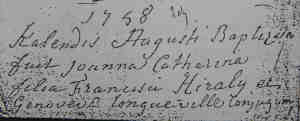 1758
Kalendis Augusti Baptizata
fuit Joanna Catharina
filia Francisci Hiraly et
Genovevæ Longueville Conjugum